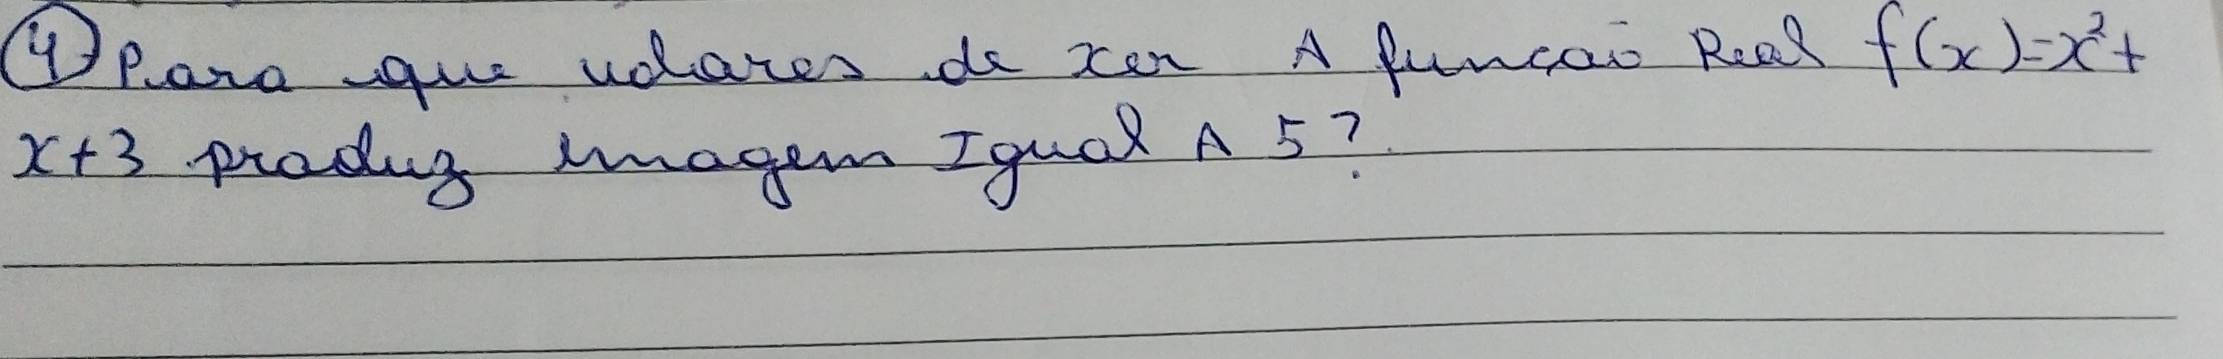 4) Para que valores de xer A função Real f(x)=x²+
x+3 produz imagem Igual A 5?